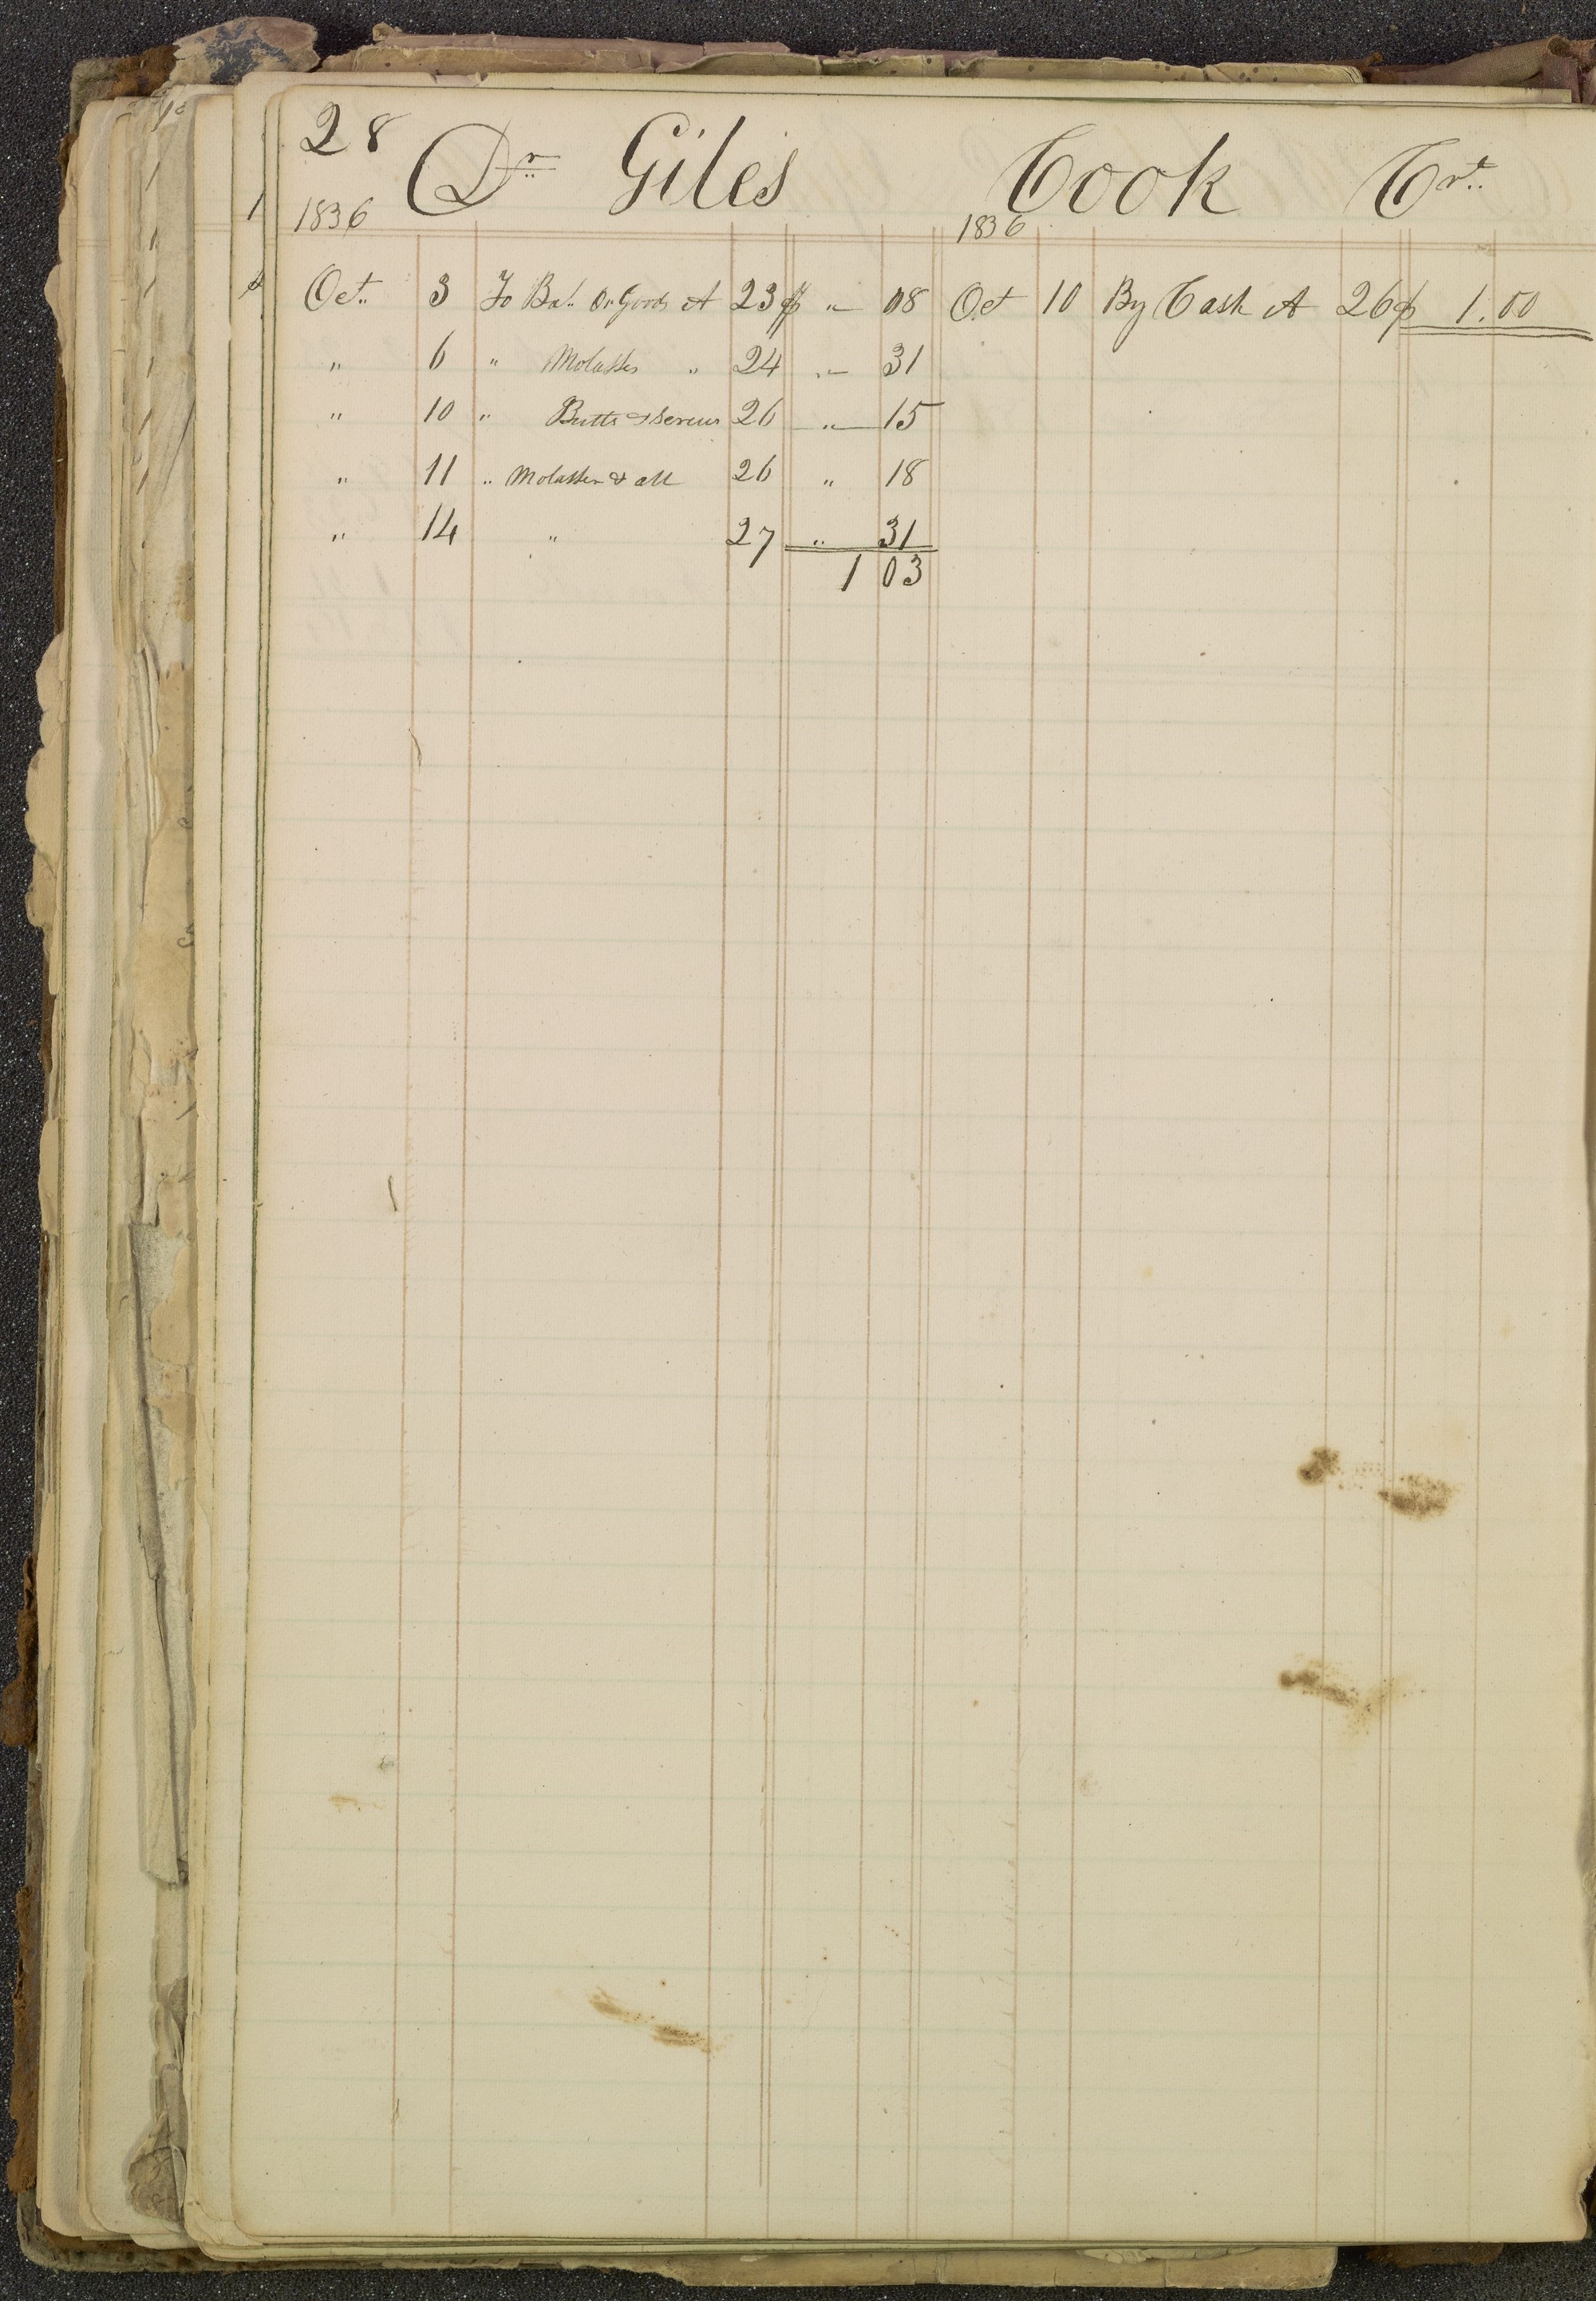 28
Dr Giles Cook Crt
1836 1836
Oct 3 To Bal. on Goods A 23 $ " 08 Oct 10 By Cash A 26 $ 1.00
" 6 " Molasses " 24 " 31
" 10 " Butts & Screws 26 " 15
" 11 " Molasses & all 26 " 18
" 14 " 27 " 31
1 03